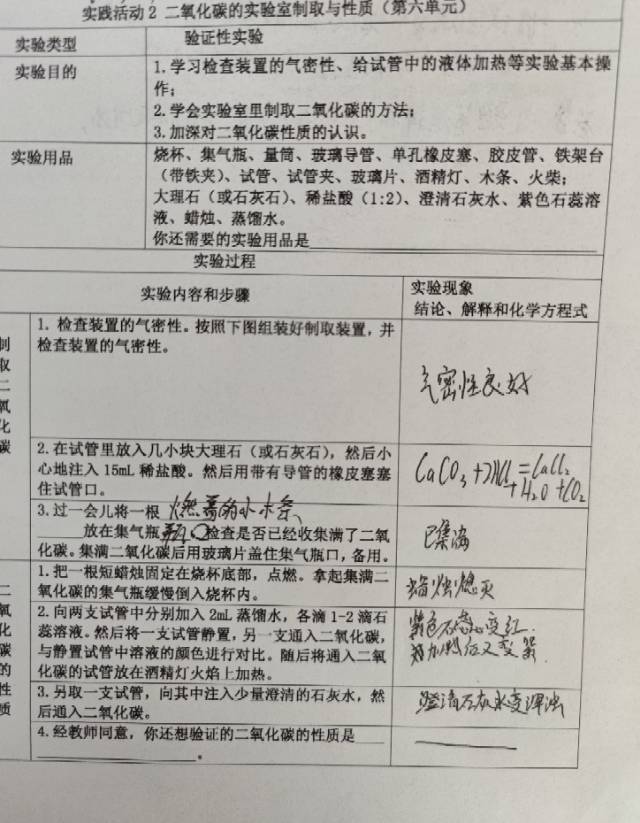 实践活动2 二氧化碳的实验室制取与性质（第六单元）
实验类型
验证性实验
实验目的
1.学习检查装置的气密性、给试管中的液体加热等实验基本操
作；
2.学会实验室里制取二氧化碳的方法；
3.加深对二氧化碳性质的认识。
实验用品
烧杯、集气瓶、量筒、玻璃导管、单孔橡皮塞、胶皮管、铁架台
（带铁夹）、试管、试管夹、玻璃片、酒精灯、木条、火柴；
大理石（或石灰石）、稀盐酸（1:2）、澄清石灰水、紫色石蕊溶
液、蜡烛、蒸馏水。
你还需要的实验用品是
实验过程
实验内容和步骤
实验现象
结论、解释和化学方程式
制
取
二
氧
化
碳
1. 检查装置的气密性。按照下图组装好制取装置，并
检查装置的气密性。
气密性良好
2.在试管里放入几小块大理石（或石灰石），然后小
心地注入 15mL 稀盐酸。然后用带有导管的橡皮塞塞
住试管口。
CaCO₃+2HCl=CaCl₂
+H₂O+CO₂
3.过一会儿将一根 燃着的小木条、
放在集气瓶 瓶口 检查是否已经收集满了二氧
化碳。集满二氧化碳后用玻璃片盖住集气瓶口，备用。
已集满
二
氧
化
碳
的
性
质
1.把一根短蜡烛固定在烧杯底部，点燃。拿起集满二
氧化碳的集气瓶缓慢倒入烧杯内。
蜡烛熄灭
2.向两支试管中分别加入 2mL 蒸馏水，各滴 1-2 滴石
蕊溶液。然后将一支试管静置，另一支通入二氧化碳，
与静置试管中溶液的颜色进行对比。随后将通入二氧
化碳的试管放在酒精灯火焰上加热。
紫色石蕊变红.
加热后又变紫.
3.另取一支试管，向其中注入少量澄清的石灰水，然
后通入二氧化碳。
澄清石灰水变浑浊
4.经教师同意，你还想验证的二氧化碳的性质是
。